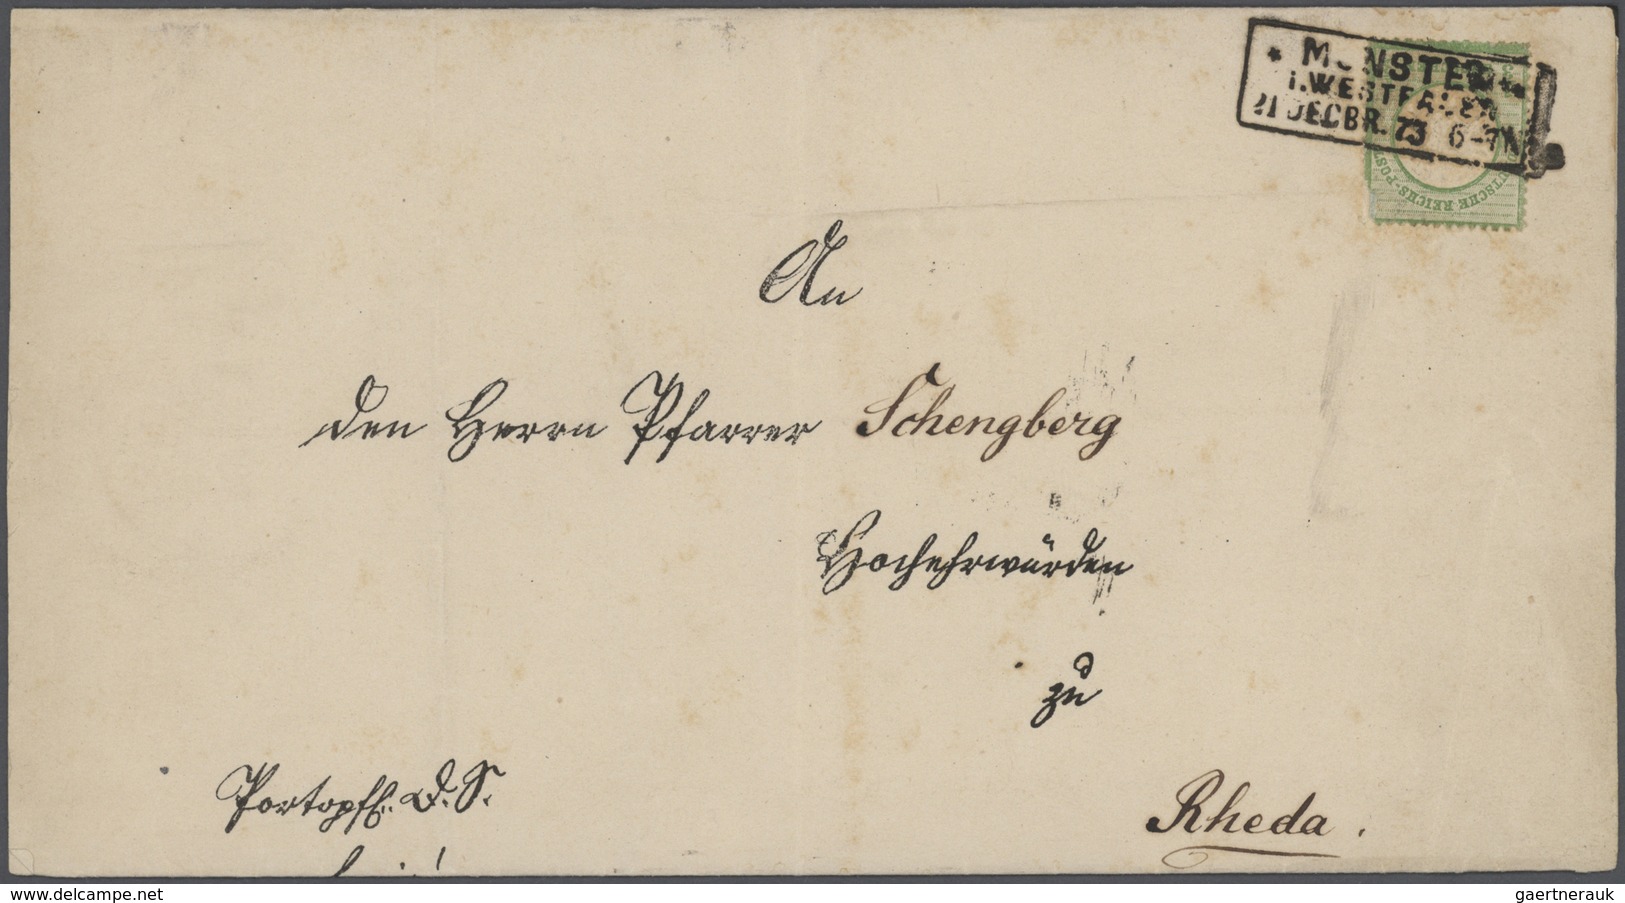 * MÜNSTER *
I. WESTFALEN
21 DECBR. 73 6-7N
DEUTSCHE REICHS-POST
An
den Herrn Pfarrer Schengberg
Hochehrwürden
zu
Portopfl. D. S.
Rheda.
delcampe.net
gaertnerauk